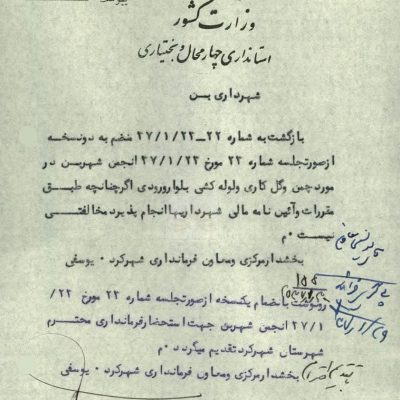 وزارت کشور
استانداری چهارمحال و بختیاری
شهرداری بن
بازگشت به شماره ۲۲ـ۳۷/۱/۲۳ منضم به دو نسخه
از صورتجلسه شماره ۲۳ مورخ ۳۷/۱/۲۳ انجمن شهر بن در
مورد چمن و گل کاری و لوله کشی بلوار ورودی اگر چنانچه طبق
مقررات و آئین نامه مالی شهرداریها انجام پذیرد مخالفتی
نیست ۰م
بخشدار مرکزی و معاون فرمانداری شهرکرد ۰ یوسفی
رونوشت بانضمام یکنسخه از صورتجلسه شماره ۲۳ مورخ ۲۳/
۳۷/۱ انجمن شهر بن جهت استحضار فرمانداری محترم
شهرستان شهرکرد تقدیم میگردد ۰م
بخشدار مرکزی و معاون فرمانداری شهرکرد ۰ یوسفی